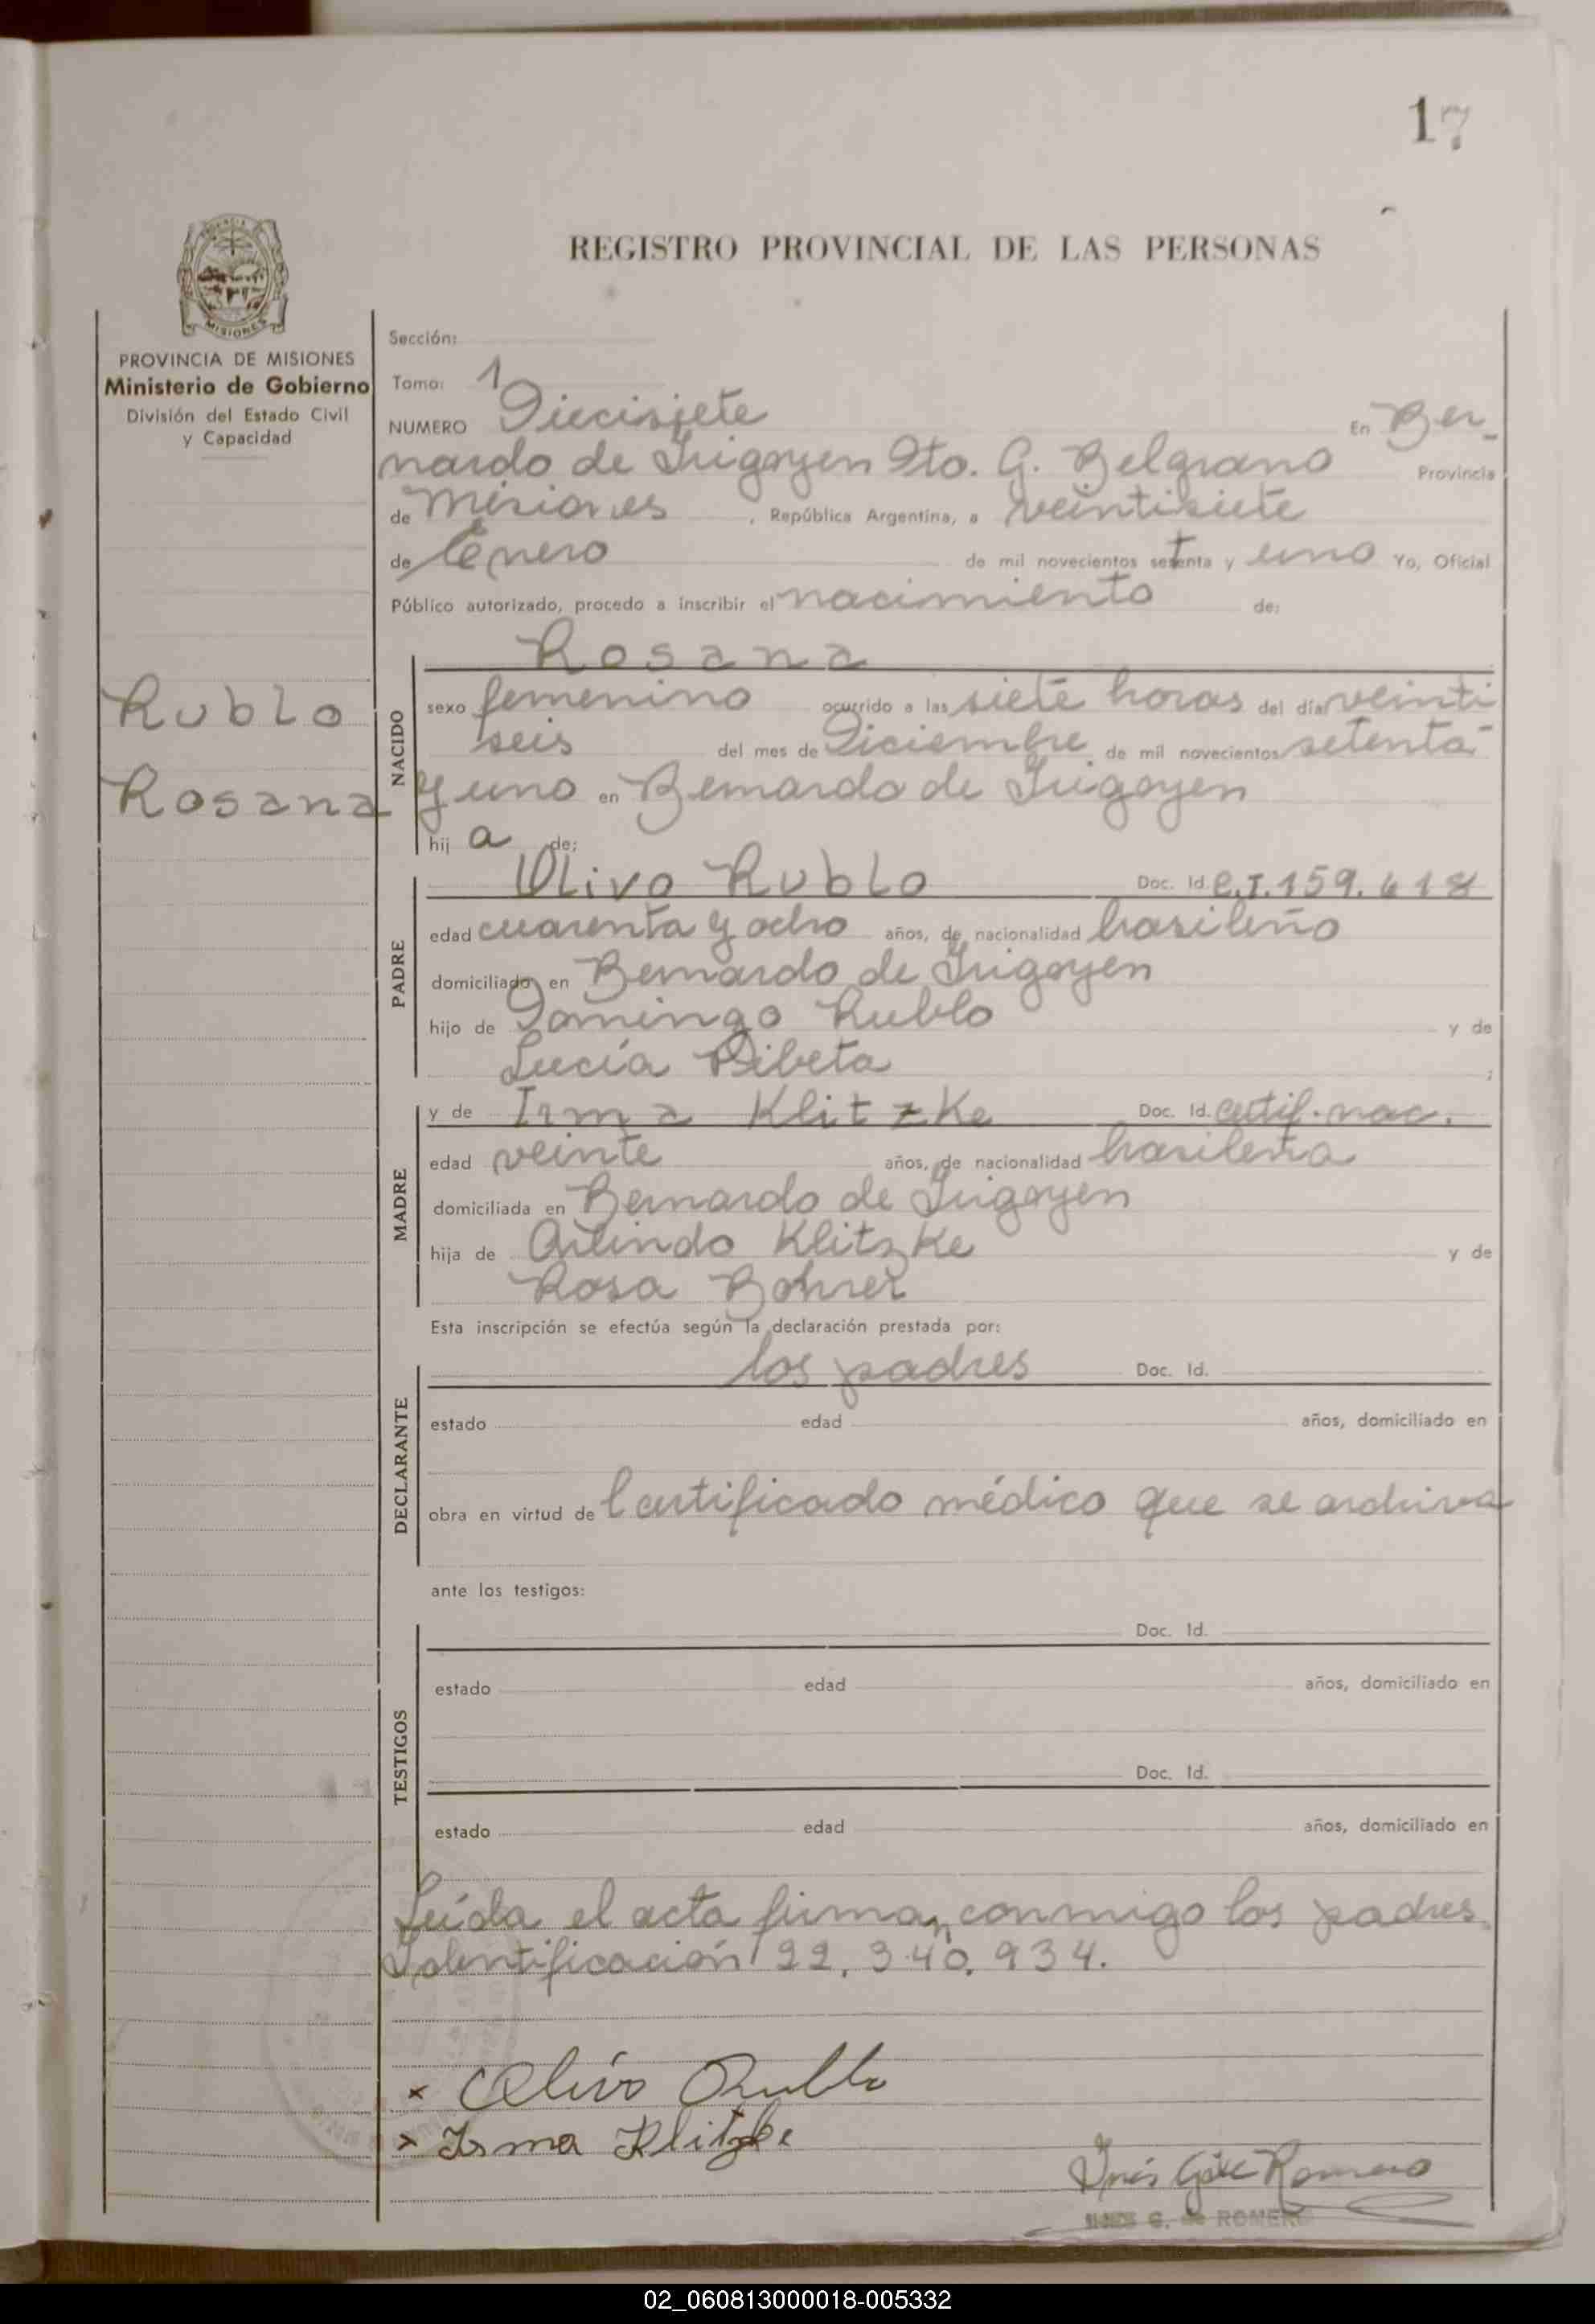 17
REGISTRO PROVINCIAL DE LAS PERSONAS
PROVINCIA MISIONES
PROVINCIA DE MISIONES
Ministerio de Gobierno
División del Estado Civil
y Capacidad
Rublo
Rosana
Sección:
Tomo: 1
NUMERO Diecisiete En Ber-
nardo de Irigoyen Dto. G. Belgrano Provincia
de Misiones, República Argentina, a veintisiete
de Enero de mil novecientos setenta y uno Yo, Oficial
Público autorizado, procedo a inscribir el nacimiento de:
Rosana
NACIDO
sexo femenino ocurrido a las siete horas del día veinti
seis del mes de Diciembre de mil novecientos setenta
y uno en Bernardo de Irigoyen
hij a de:
PADRE
Olivo Rublo Doc. Id. C.I. 159.618
edad cuarenta y ocho años, de nacionalidad brasileño
domiciliado en Bernardo de Irigoyen
hijo de Domingo Rublo y de
Lucía Ribeta ;
MADRE
y de Irma Klitzke Doc. Id. certif. nac.
edad veinte años, de nacionalidad brasileña
domiciliada en Bernardo de Irigoyen
hija de Arlindo Klitzke y de
Rosa Bohrer
Esta inscripción se efectúa según la declaración prestada por:
DECLARANTE
los padres Doc. Id.
estado edad años, domiciliado en
obra en virtud de Certificado médico que se archiva
ante los testigos:
TESTIGOS
Doc. Id.
estado edad años, domiciliado en
Doc. Id.
estado edad años, domiciliado en
Leída el acta firman conmigo los padres.
Identificación 22.340.934.
x Olivo Rublo
x Irma Klitzke
Inés G. de Romero
G. de ROMERO
02_060813000018-005332